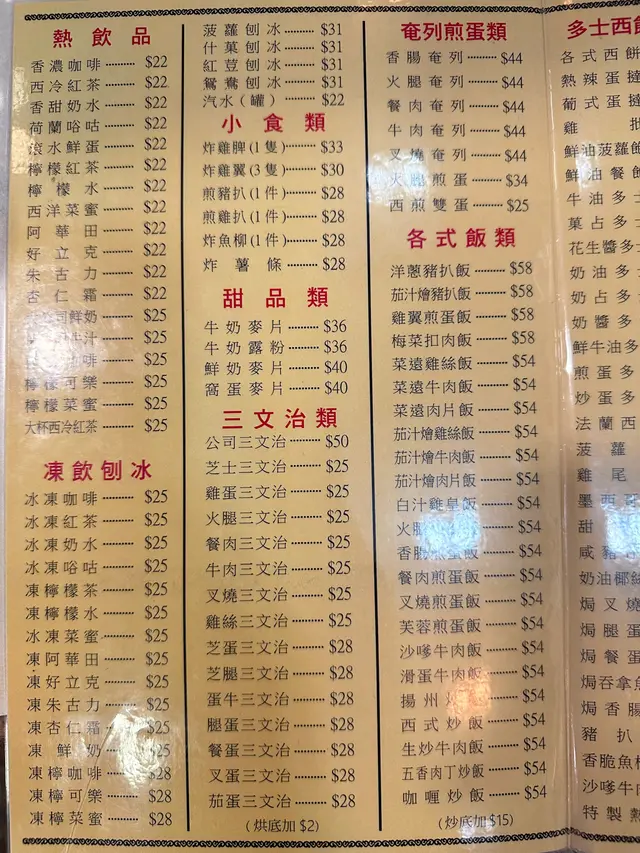 熱飲品
香濃咖啡 ········ $22
西冷紅茶 ········ $22
香甜奶水 ········ $22
荷蘭唂咕 ········ $22
滾水鮮蛋 ········ $22
檸檬紅茶 ········ $22
檸檬水 ········ $22
西洋菜蜜 ········ $22
阿華田 ········ $22
好立克 ········ $22
朱古力 ········ $22
杏仁霜 ········ $22
司鮮奶 ········ $25
牛汁 ········ $25
啡 ········ $25
檸檬可樂 ········ $25
檸檬菜蜜 ········ $25
大杯西冷紅茶 ········ $25
凍飲刨冰
冰凍咖啡 ········ $25
冰凍紅茶 ········ $25
冰凍奶水 ········ $25
冰凍唂咕 ········ $25
凍檸檬茶 ········ $25
凍檸檬水 ········ $25
冰凍菜蜜 ········ $25
凍阿華田 ········ $25
凍好立克 ········ $25
凍朱古力 ········ $25
凍杏仁霜 ········ $25
凍鮮奶 ········ $25
凍檸咖啡 ········ $28
凍檸可樂 ········ $28
凍檸菜蜜 ········ $28
菠蘿刨冰 ········ $31
什菓刨冰 ········ $31
紅荳刨冰 ········ $31
鴛鴦刨冰 ········ $31
汽水(罐) ········ $22
小食類
炸雞脾(1隻) ········ $33
炸雞翼(3隻) ········ $30
煎豬扒(1件) ········ $28
煎雞扒(1件) ········ $28
炸魚柳(1件) ········ $28
炸薯條 ········ $28
甜品類
牛奶麥片 ········ $36
牛奶露粉 ········ $36
鮮奶麥片 ········ $40
窩蛋麥片 ········ $40
三文治類
公司三文治 ········ $50
芝士三文治 ········ $25
雞蛋三文治 ········ $25
火腿三文治 ········ $25
餐肉三文治 ········ $25
牛肉三文治 ········ $25
叉燒三文治 ········ $25
雞絲三文治 ········ $25
芝蛋三文治 ········ $28
芝腿三文治 ········ $28
蛋牛三文治 ········ $28
腿蛋三文治 ········ $28
餐蛋三文治 ········ $28
叉蛋三文治 ········ $28
茄蛋三文治 ········ $28
(烘底加 $2)
奄列煎蛋類
香腸奄列 ········ $44
火腿奄列 ········ $44
餐肉奄列 ········ $44
牛肉奄列 ········ $44
叉燒奄列 ········ $44
火腿煎蛋 ········ $34
西煎雙蛋 ········ $25
各式飯類
洋蔥豬扒飯 ········ $58
茄汁燴豬扒飯 ········ $58
雞翼煎蛋飯 ········ $58
梅菜扣肉飯 ········ $58
菜遠雞絲飯 ········ $54
菜遠牛肉飯 ········ $54
菜遠肉片飯 ········ $54
茄汁燴雞絲飯 ········ $54
茄汁燴牛肉飯 ········ $54
茄汁燴肉片飯 ········ $54
白汁雞皇飯 ········ $54
火腿煎蛋飯 ········ $54
香腸煎蛋飯 ········ $54
餐肉煎蛋飯 ········ $54
叉燒煎蛋飯 ········ $54
芙蓉煎蛋飯 ········ $54
沙嗲牛肉飯 ········ $54
滑蛋牛肉飯 ········ $54
揚州炒飯 ········ $54
西式炒飯 ········ $54
生炒牛肉飯 ········ $54
五香肉丁炒飯 ········ $54
咖喱炒飯 ········ $54
(炒底加 $15)
多士西餅
各式西餅
熱辣蛋撻
葡式蛋撻
雞批
鮮油菠蘿飽
鮮油餐飽
牛油多士
菓占多士
花生醬多
奶油多
奶占多
奶醬多
鮮牛油多
煎蛋多
炒蛋多
法蘭西
菠蘿
雞尾
墨西
甜
咸豬
奶油椰絲
焗叉燒
焗腿蛋
焗餐蛋
焗吞拿魚
焗香腸
豬扒
香脆魚柳
沙嗲牛
特製熱